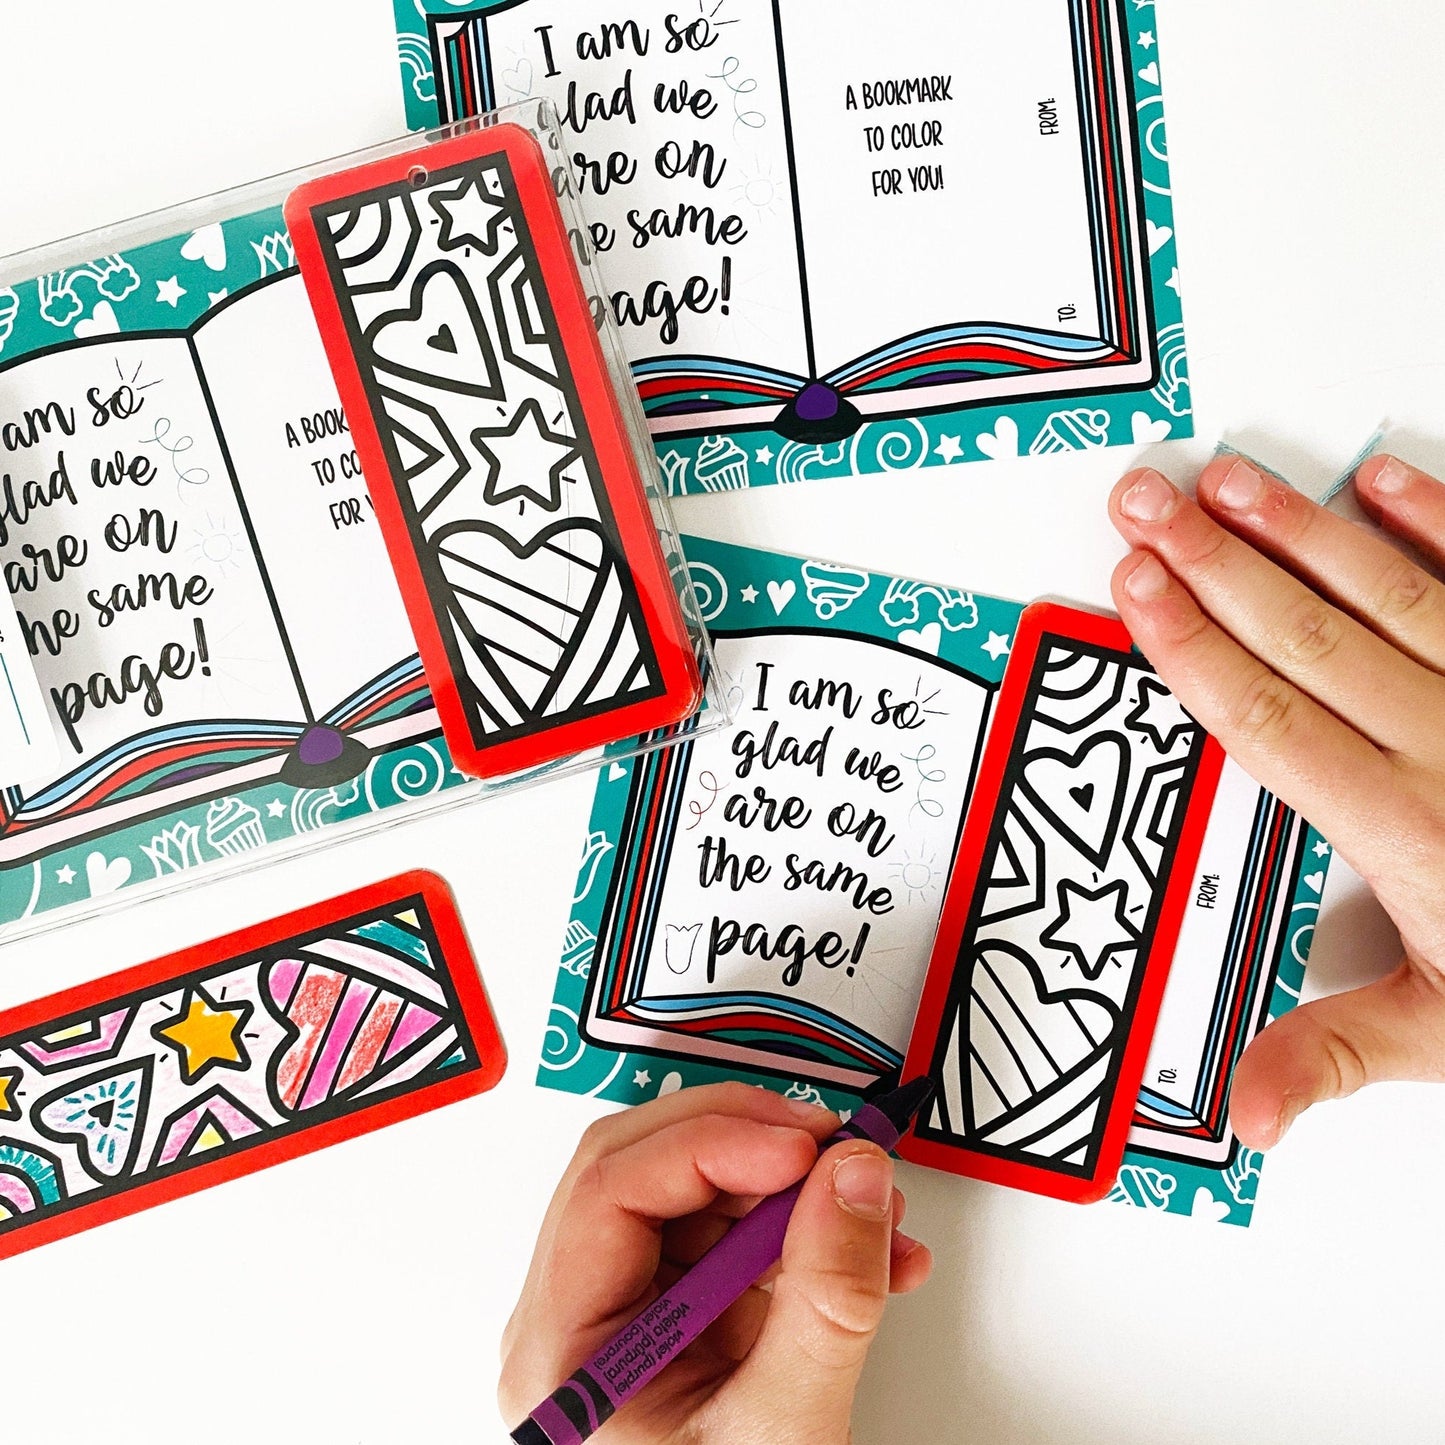 I am so
glad we
are on
the same
page!
A BOOKMARK
TO COLOR
FOR YOU!
FROM:
TO:
am so
glad we
are on
he same
page!
A BOOK
TO CO
FOR
I am so
glad we
are on
the same
page!
FROM:
TO:
violet (purple)
violeta (púrpura)
violet (pourpre)